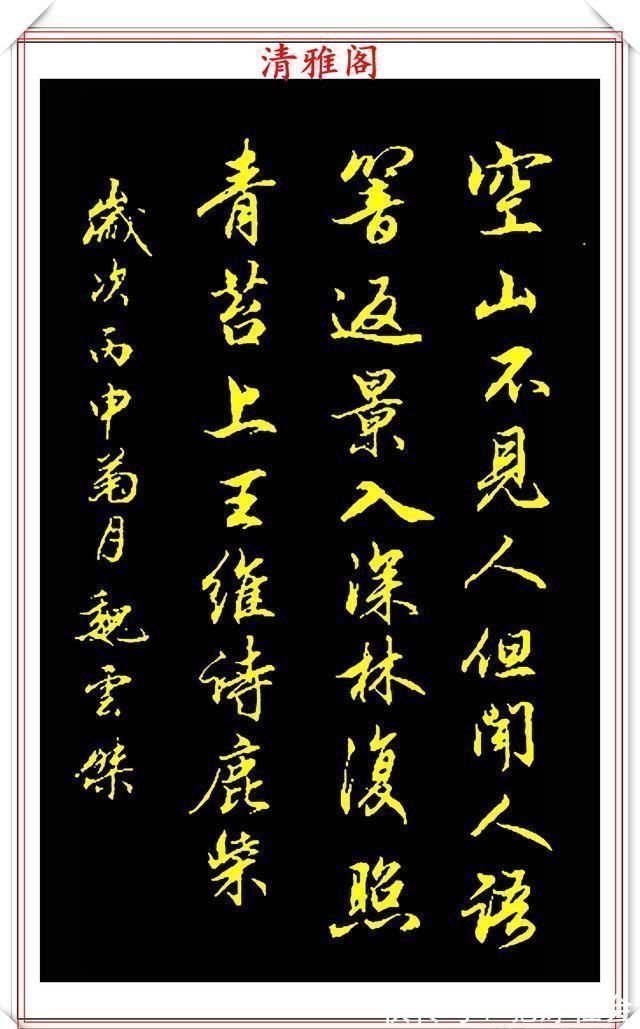 清雅阁
空山不見人但聞人語
響返景入深林復照
青苔上王維诗鹿柴
歲次丙申菊月魏雲傑